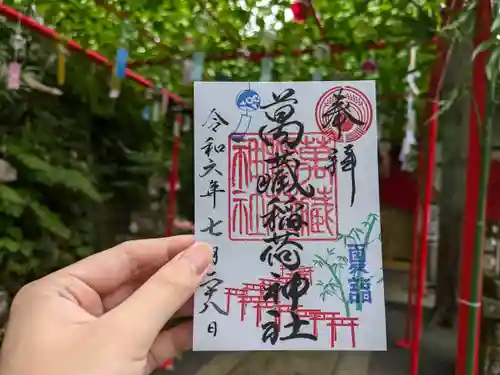 奉拝
萬蔵稲荷神社
萬蔵
稲荷
神社
夏詣
令和六年七月二六日